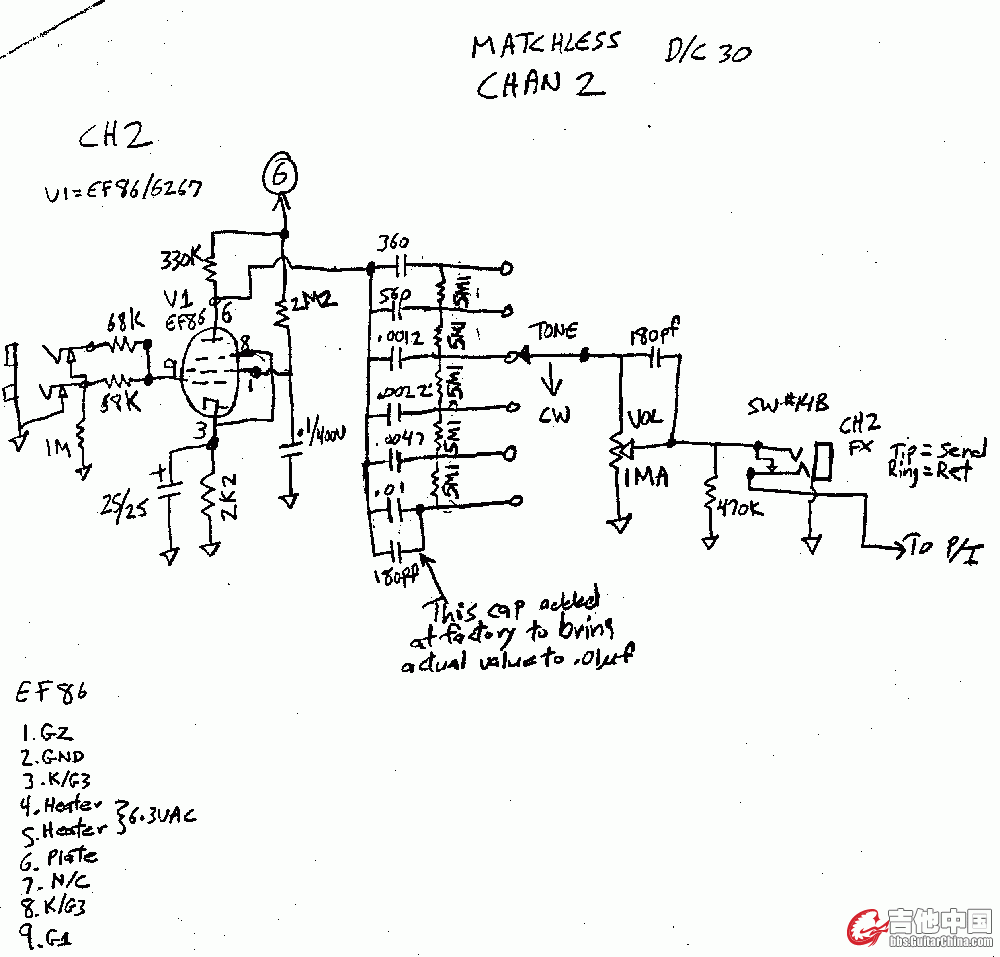 MATCHLESS D/C 30
CHAN 2
CH2
V1=EF86/6267
6
330K
V1
EF86
6
8
9
1
3
68K
68K
1M
25/25
2K2
2M2
.1/400V
360
56p
.0012
.0022
.0047
.01
180pf
1M5
1M5
1M5
1M5
1M5
TONE
CW
180pf
VOL
1MA
470K
SW #14B
CH2
FX
Tip = Send
Ring = Ret
To P/I
This cap added
at factory to bring
actual value to .01µf
EF86
1. G2
2. GND
3. K/G3
4. Heater
5. Heater
6.3VAC
6. Plate
7. N/C
8. K/G3
9. G1
吉他中国
bbs.GuitarChina.com